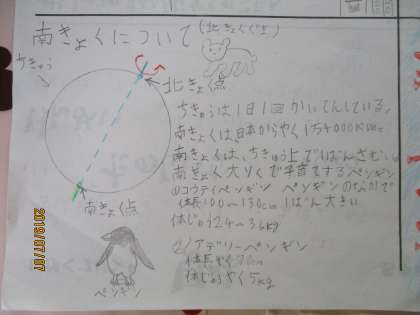 南きょくについて(北きょくぐま)
ちきゅう
北きょく点
ちきゅうは1日1回かいてんしている。
南きょくは、日本からやく1万4000km
南きょくは、ちきゅう上で1ばんさむい。
南きょく大りくで子育てするペンギン
①コウテイペンギン ペンギンのなかで
体長100〜130cm 1ばん大きい
体じゅう24〜36kg
南きょく点
2)アデリーペンギン
体長やく70cm
体じゅうやく5kg
ペンギン
2019/07/07